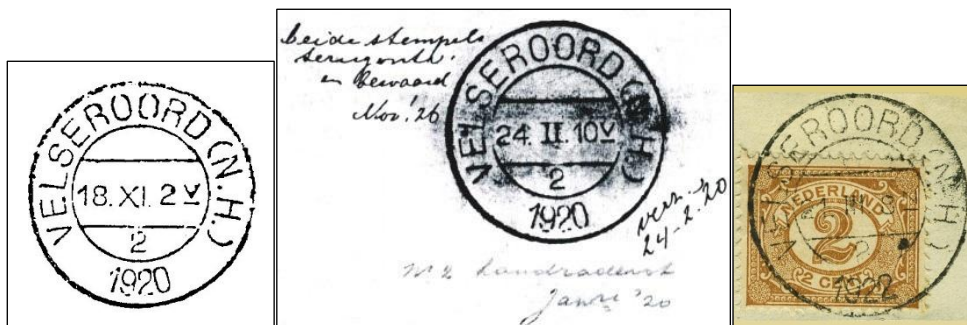 VELSEROORD (N.H.)
18. XI. 2 V
2
1920
beide stempels
en bewaard
Nov. '26
VELSEROORD (N.H.)
24. II. 10V
2
1920
verz.
24-2-20
No 2
'20
VELSEROORD (N.H.)
NEDERLAND
2
2 CENT
1922